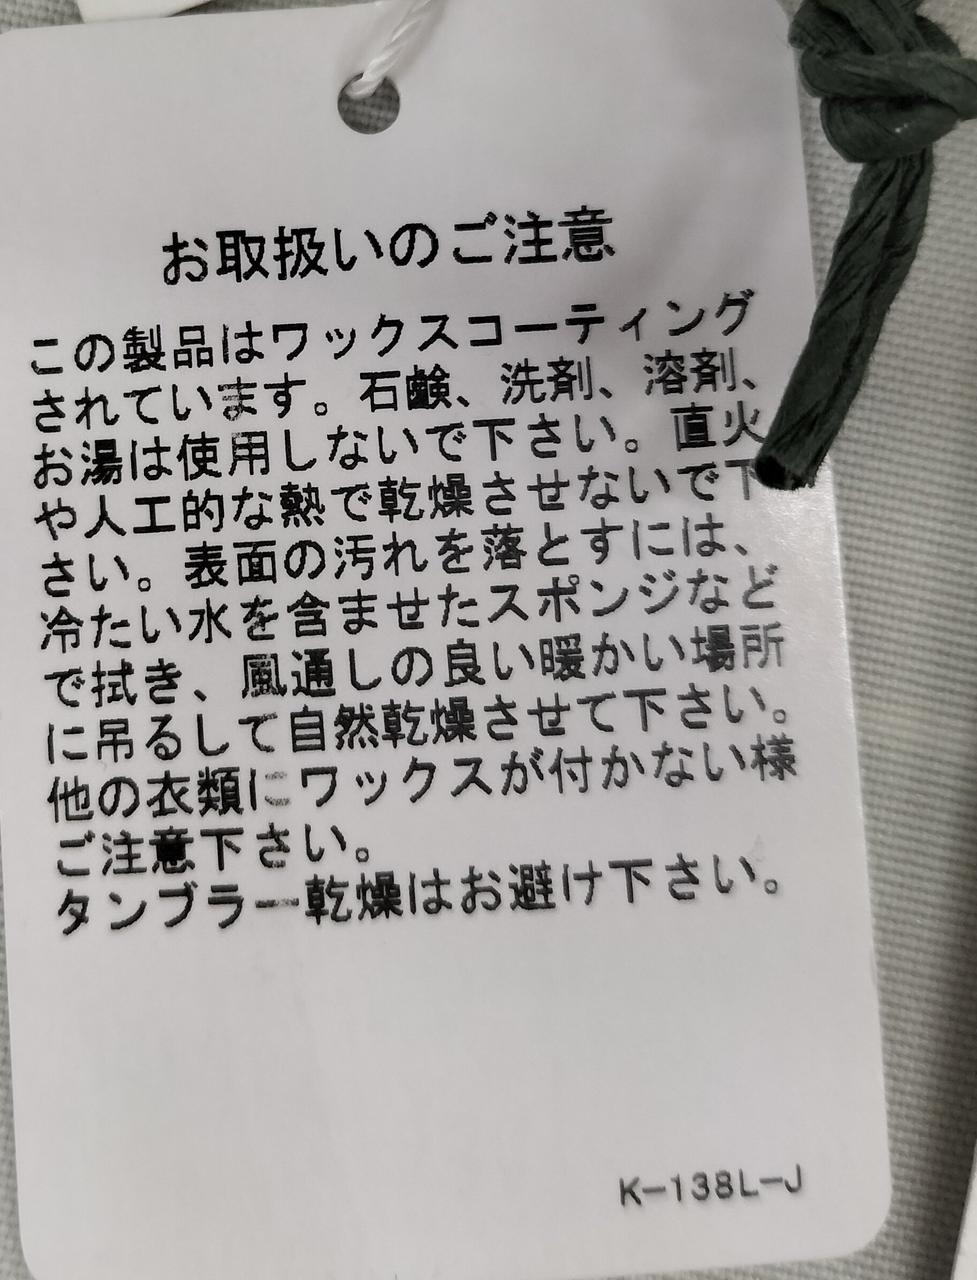 お取扱いのご注意
この製品はワックスコーティング
されています。石鹸、洗剤、溶剤、
お湯は使用しないで下さい。直火
や人工的な熱で乾燥させないで下
さい。表面の汚れを落とすには、
冷たい水を含ませたスポンジなど
で拭き、風通しの良い暖かい場所
に吊るして自然乾燥させて下さい。
他の衣類にワックスが付かない様
ご注意下さい。
タンブラー乾燥はお避け下さい。
K-138L-J